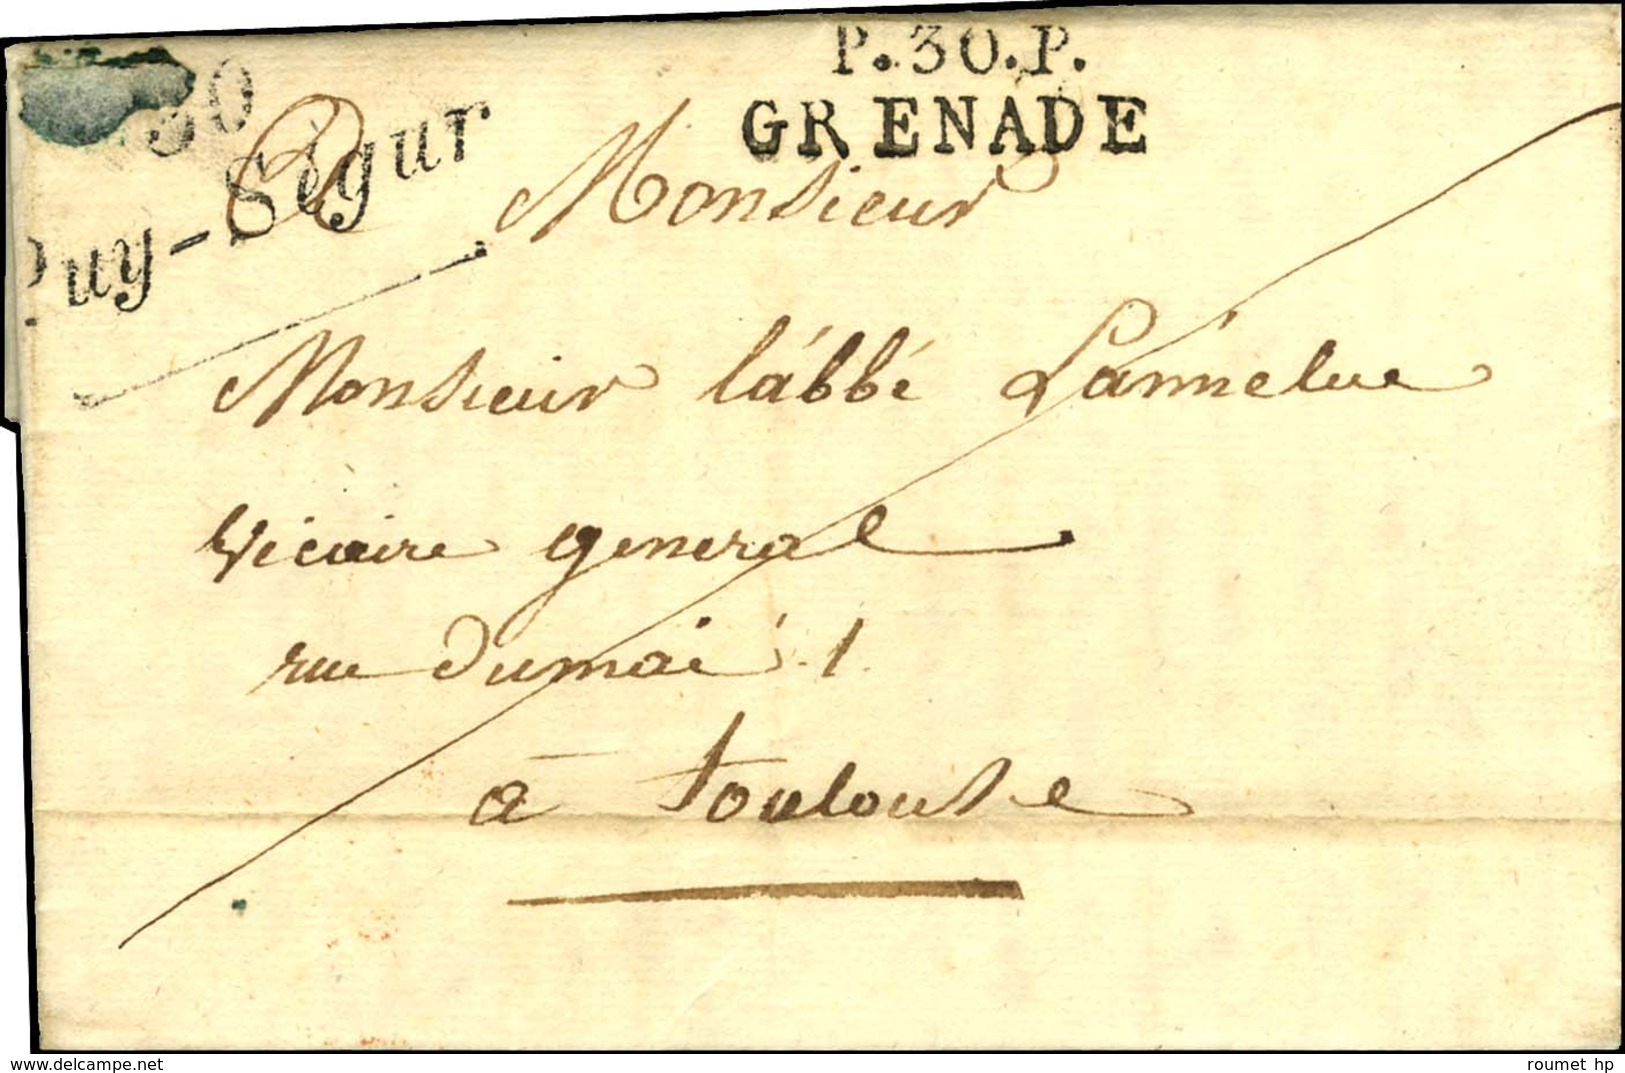 P.30.P.
GRENADE
30
Puy-Ségur
A Monsieur
Monsieur l'abbé Lannelue
Vicaire general
rue dumai 1
à toulouse
delcampe.net
roumet hp